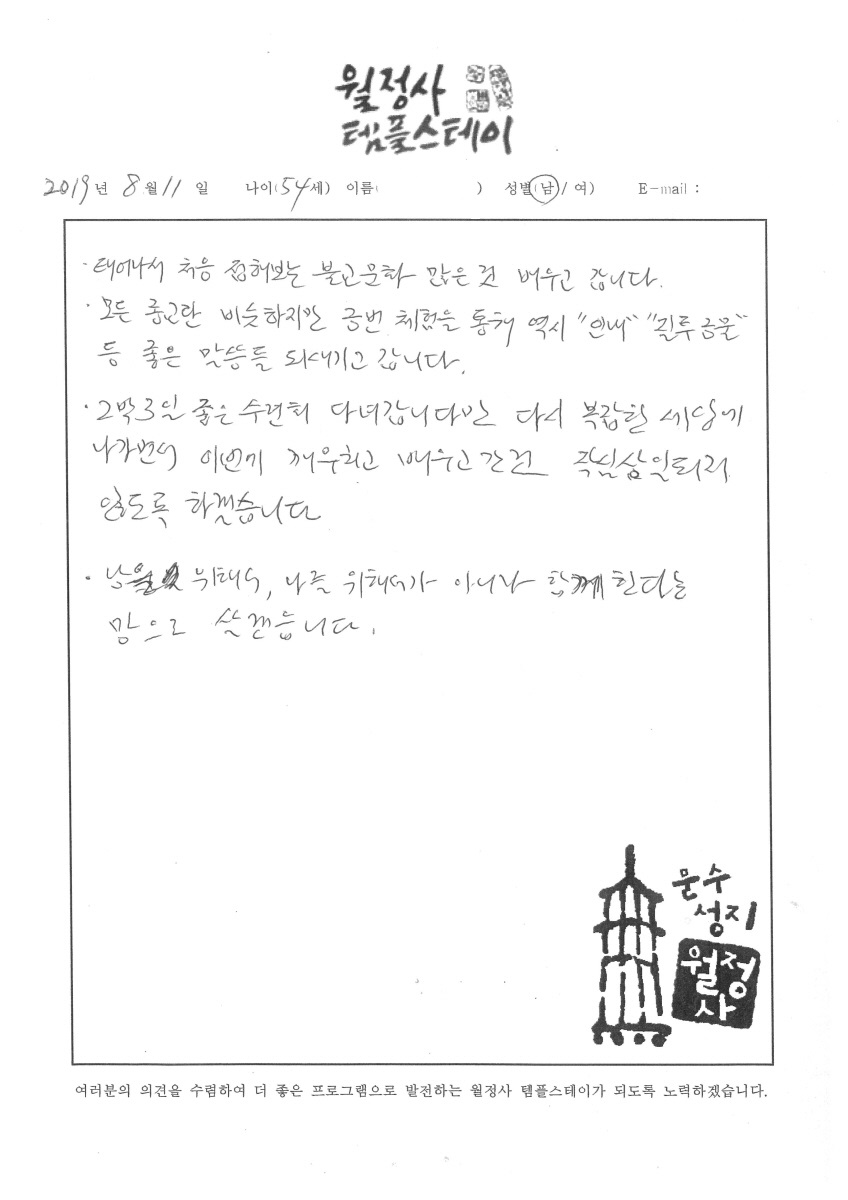 월정사
템플스테이
2019년 8월 11일 나이(54세) 이름( ) 성별(남/여) E-mail :
· 태어나서 처음 접해보는 불교문화 많은 것 배우고 갑니다.
· 모든 종교란 비슷하지만 금번 체험을 통해 역시 "인내" "질투금물"
등 좋은 말씀들 되새기고 갑니다.
· 2박3일 좋은 수련회 다녀갑니다만 다시 복잡한 세상에
나가면서 이번에 깨우치고 배우고 간건 작심삼일되지
않도록 하겠습니다
· 남을 위해서, 나를 위해서가 아니라 함께 한다는
맘으로 살겠습니다.
문수
성지
월정
사
여러분의 의견을 수렴하여 더 좋은 프로그램으로 발전하는 월정사 템플스테이가 되도록 노력하겠습니다.